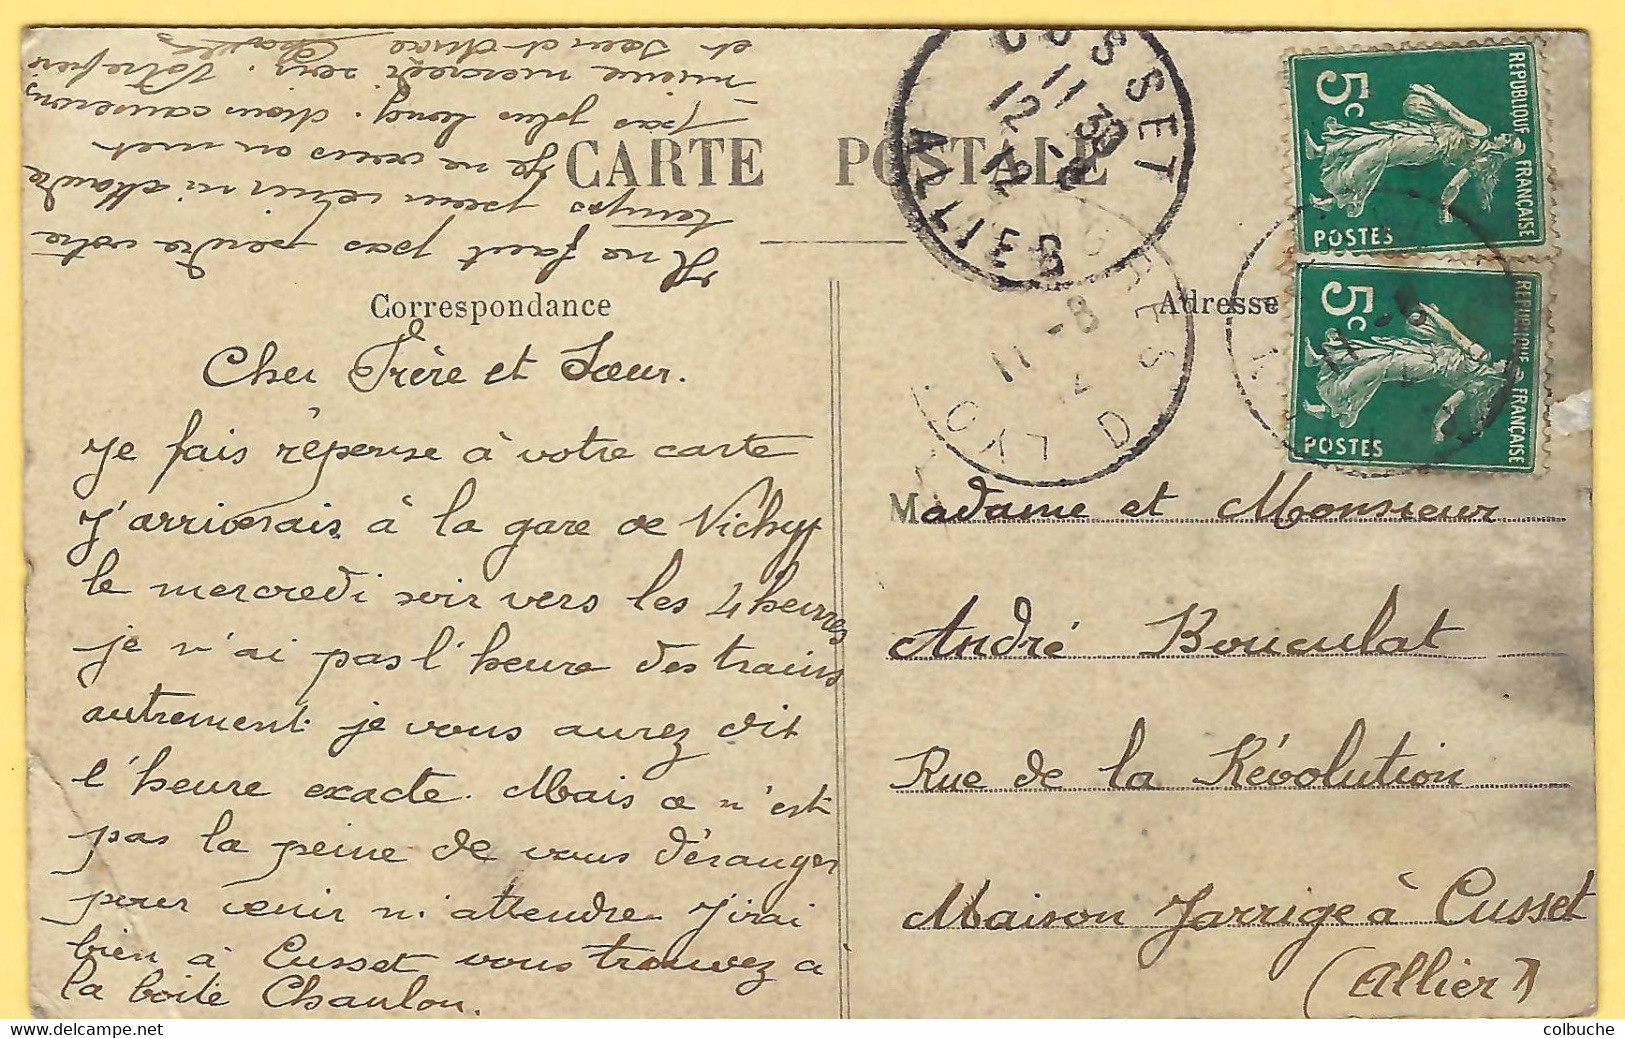 CARTE POSTALE
Correspondance
Cher Frère et Sœur.
Je fais réponse à votre carte
J'arriverais à la gare de Vichy
le mercredi soir vers les 4 heures
je n'ai pas l'heure des trains
autrement je vous aurez dit
l'heure exacte. Mais ce n'est
pas la peine de vous déranger
pour venir m'attendre J'irai
bien à Cusset vous trouvez à
la boite Chaulon.
Il ne faut pas perdre votre
temps pour venir ni Maria
Je ne vous en met
pas plus long. Nous causerons
mieux mercredi soir. Votre frère
et Sœur
Adresse
Madame et Monsieur
André Bouculat
Rue de la Révolution
Maison Jarrige à Cusset
(Allier)
REPUBLIQUE FRANÇAISE
5c
POSTES
REPUBLIQUE FRANÇAISE
5c
POSTES
CUSSET
11 30
12 - 8
12
ALLIER
11 - 8
colbuche